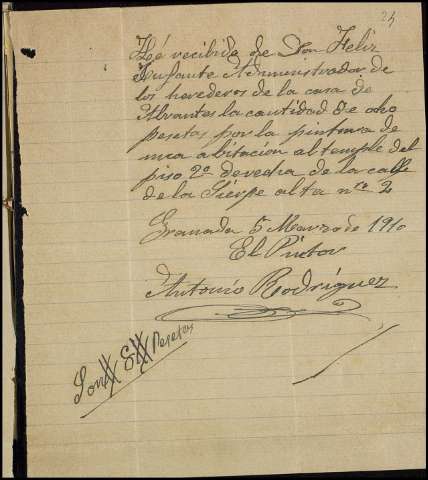 24
Hé recibida de Don Felix
Infante Administrador de
los herederos de la casa de
Abrantes la cantidad de ocho
pesetas por la pintura de
una abitación al temple del
piso 2º derecha de la calle
de la Sierpe alta nro 2
Granada 5 Marzo de 1910
El Pintor
Antonio Rodríguez
Son 8 Pesetas